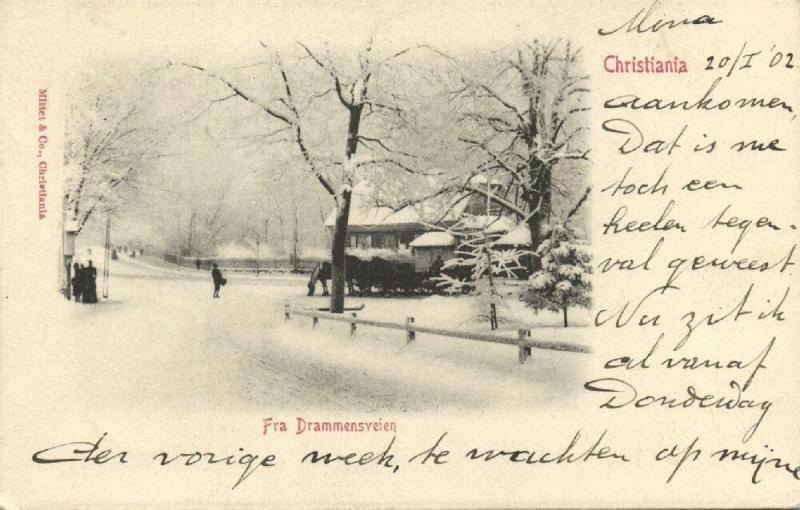 Mina
Christiania 20/I '02
aankomen,
Dat is me
toch een
heelen tegen-
val geweest.
Nu zit ik
al vanaf
Donderdag
der vorige week, te wachten op mijne
Fra Drammensveien
Mittet & Co., Christiania